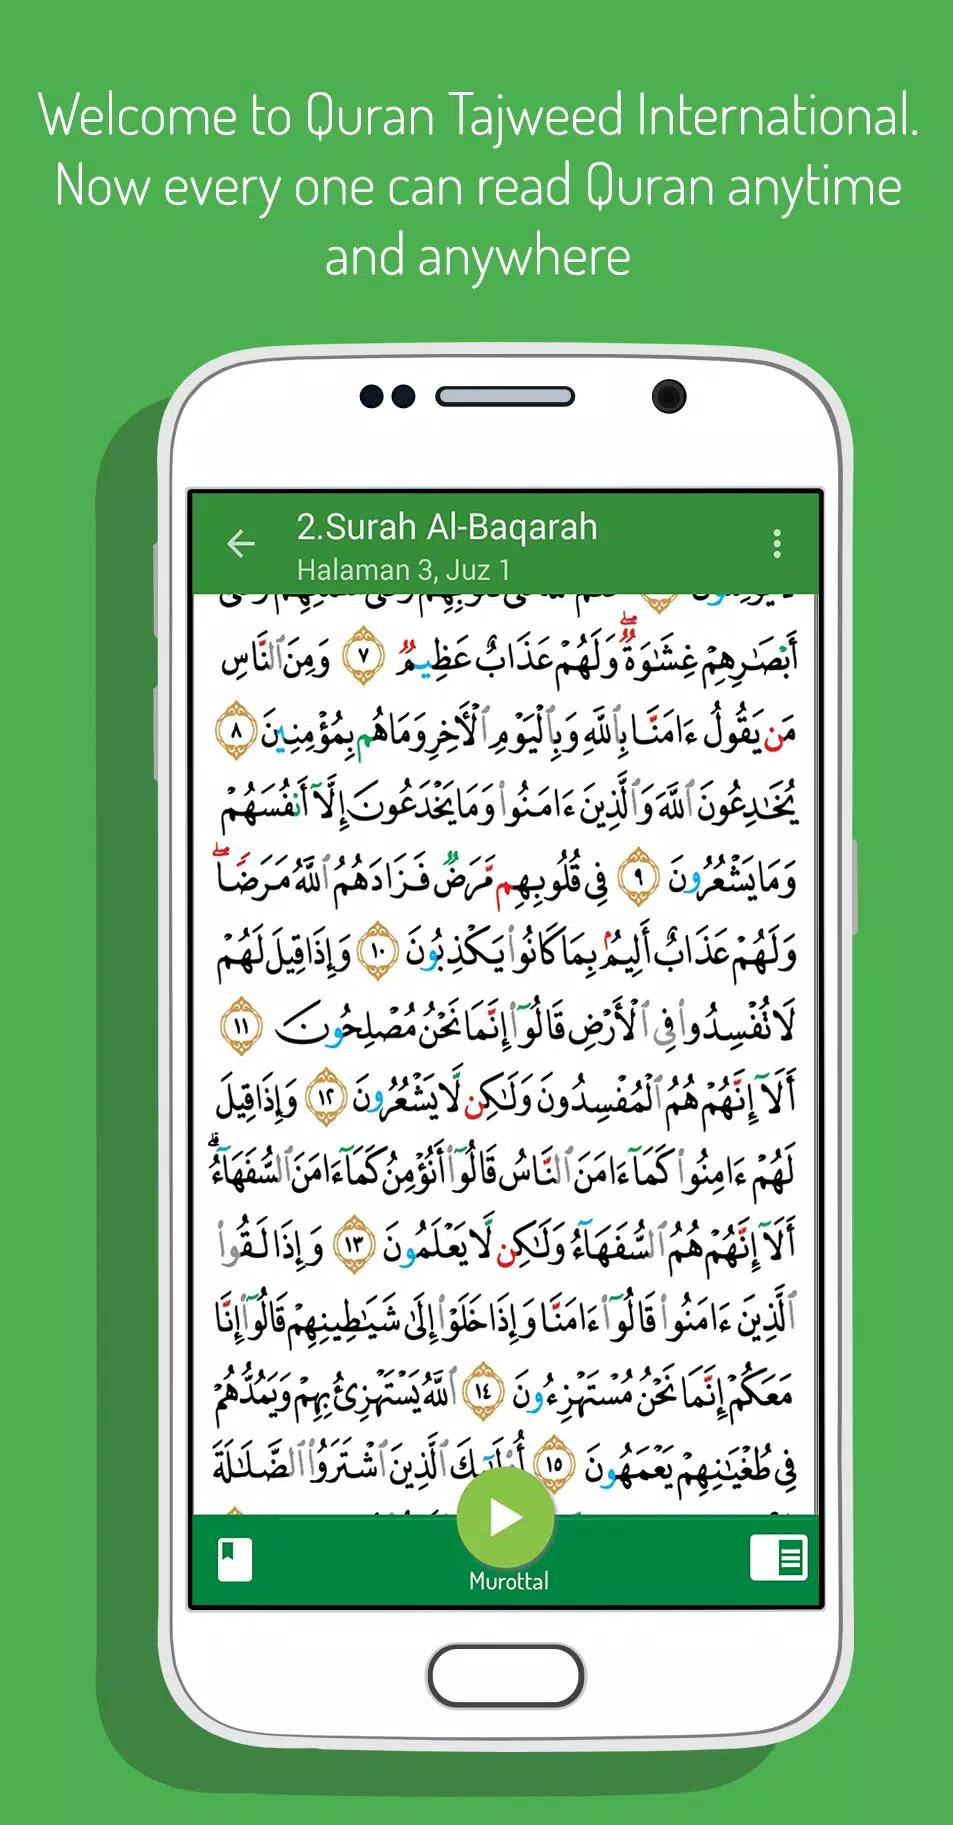 Welcome to Quran Tajweed International.
Now every one can read Quran anytime
and anywhere
2.Surah Al-Baqarah
Halaman 3, Juz 1
أَبْصَٰرِهِمْ غِشَٰوَةٌۖ وَلَهُمْ عَذَابٌ عَظِيمٌ ٧ وَمِنَ ٱلنَّاسِ
مَن يَقُولُ ءَامَنَّا بِٱللَّهِ وَبِٱلْيَوْمِ ٱلْأَخِرِ وَمَا هُم بِمُؤْمِنِينَ ٨
يُخَٰدِعُونَ ٱللَّهَ وَٱلَّذِينَ ءَامَنُوا۟ وَمَا يَخْدَعُونَ إِلَّآ أَنفُسَهُمْ
وَمَا يَشْعُرُونَ ٩ فِى قُلُوبِهِم مَّرَضٌ فَزَادَهُمُ ٱللَّهُ مَرَضًاۖ
وَلَهُمْ عَذَابٌ أَلِيمٌۢ بِمَا كَانُوا۟ يَكْذِبُونَ ١٠ وَإِذَا قِيلَ لَهُمْ
لَا تُفْسِدُوا۟ فِى ٱلْأَرْضِ قَالُوٓا۟ إِنَّمَا نَحْنُ مُصْلِحُونَ ١١
أَلَآ إِنَّهُمْ هُمُ ٱلْمُفْسِدُونَ وَلَٰكِن لَّا يَشْعُرُونَ ١٢ وَإِذَا قِيلَ
لَهُمْ ءَامِنُوا۟ كَمَآ ءَامَنَ ٱلنَّاسُ قَالُوٓا۟ أَنُؤْمِنُ كَمَآ ءَامَنَ ٱلسُّفَهَآءُۗ
أَلَآ إِنَّهُمْ هُمُ ٱلسُّفَهَآءُ وَلَٰكِن لَّا يَعْلَمُونَ ١٣ وَإِذَا لَقُوا۟
ٱلَّذِينَ ءَامَنُوا۟ قَالُوٓا۟ ءَامَنَّا وَإِذَا خَلَوْا۟ إِلَىٰ شَيَٰطِينِهِمْ قَالُوٓا۟ إِنَّا
مَعَكُمْ إِنَّمَا نَحْنُ مُسْتَهْزِءُونَ ١٤ ٱللَّهُ يَسْتَهْزِئُ بِهِمْ وَيَمُدُّهُمْ
فِى طُغْيَٰنِهِمْ يَعْمَهُونَ ١٥ أُو۟لَٰٓئِكَ ٱلَّذِينَ ٱشْتَرَوُا۟ ٱلضَّلَٰلَةَ
Murottal